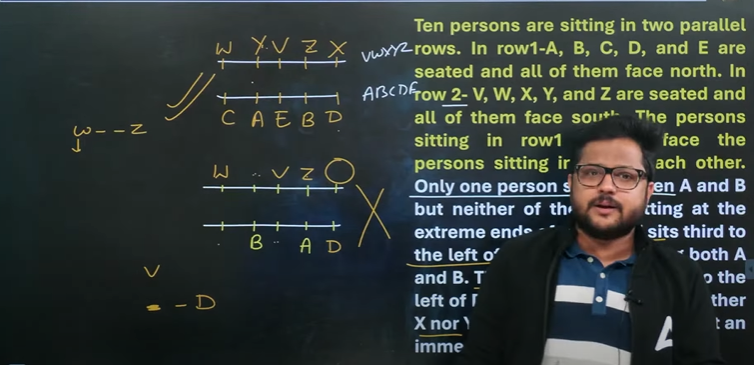 W Y V Z X
VWXYZ
ABCDE
C A E B D
W - - Z
W V Z
B A D
V
- D
Ten persons are sitting in two parallel
rows. In row1-A, B, C, D, and E are
seated and all of them face north. In
row 2- V, W, X, Y, and Z are seated and
all of them face south. The persons
sitting in row1 face the
persons sitting in each other.
Only one person A and B
but neither of the sitting at the
extreme ends sits third to
the left of both A
and B. to the
left of
X nor an
imme